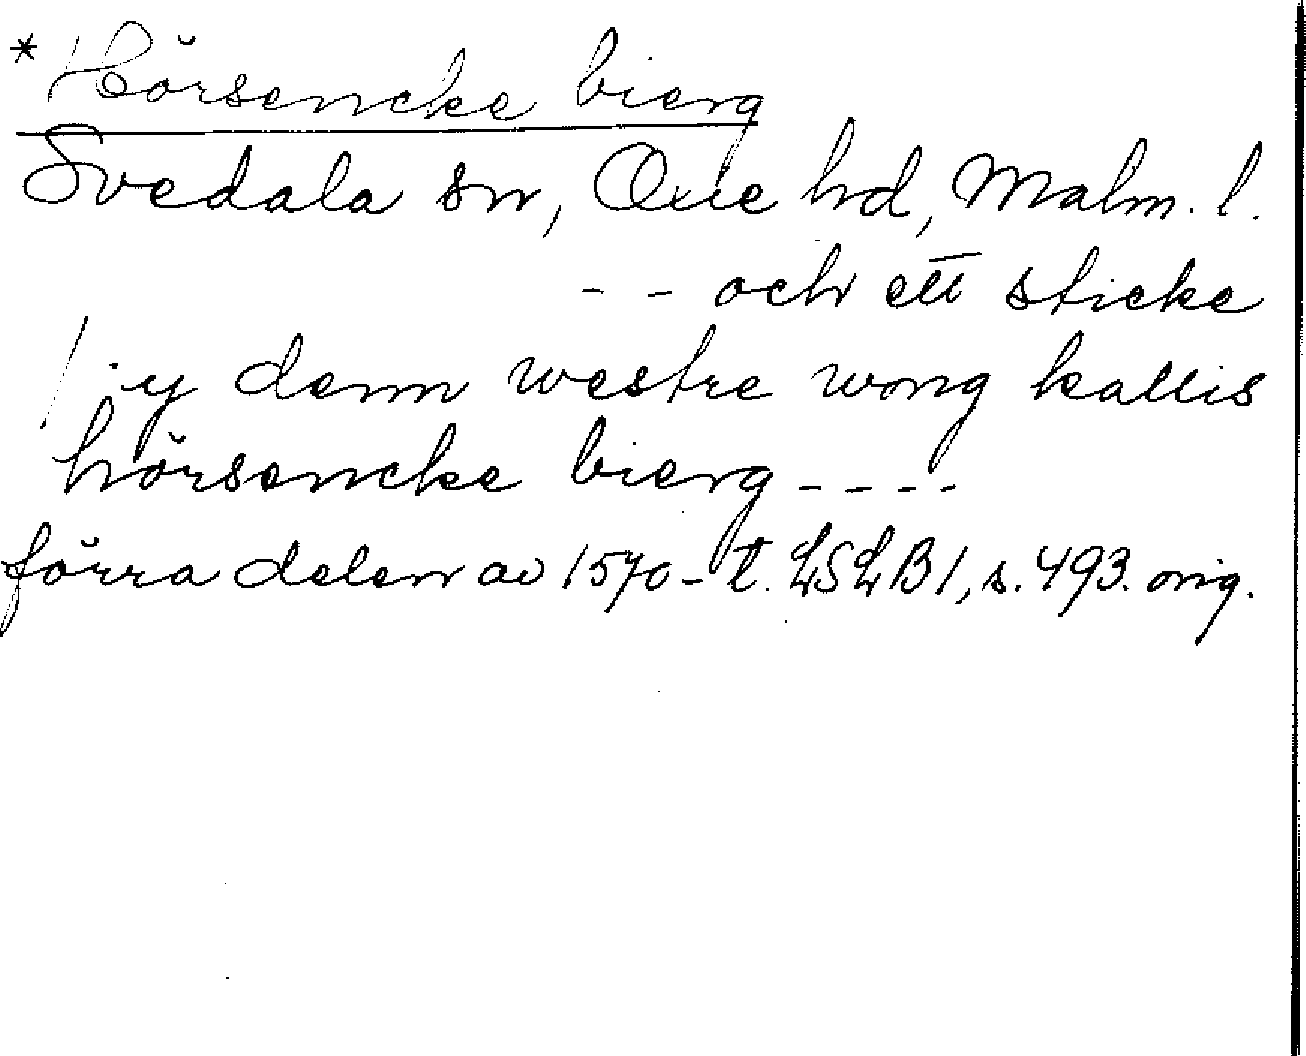 *Hörsencke bierg
Svedala sn, Oxie hd, Malm. l.
- - och ett sticke
/ y denn westre wong kallis
hörsencke bierg - - - -
förra delen av 1570-t. LSLB1, s. 493. orig.